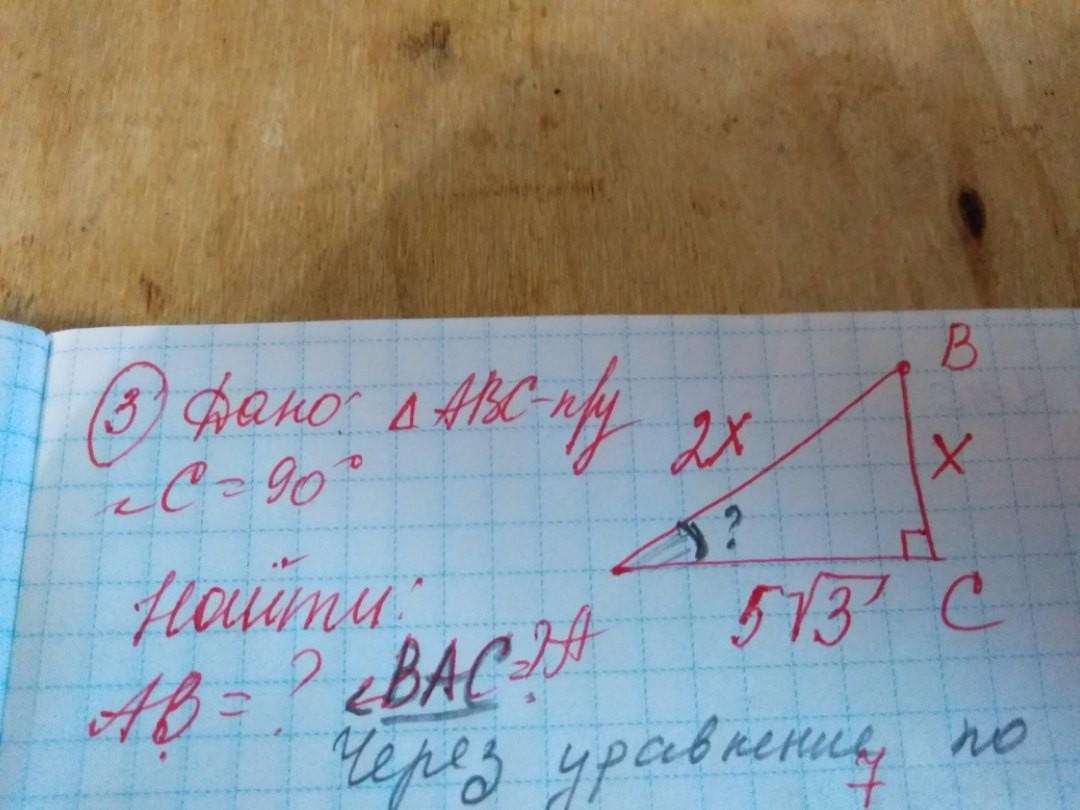 3 Дано: △ ABC-п/у
∠C = 90°
Найти:
AB = ? ∠BAC = ?
Через уравнение по
7
B
2x
x
?
5√3
C
A